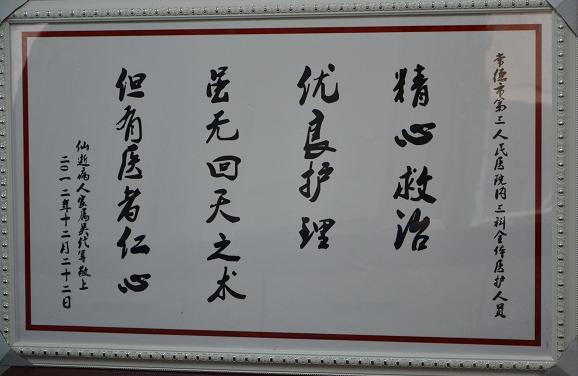 常德市第三人民医院内三科全体医护人员
精心救治
优良护理
虽无回天之术
但有医者仁心
仙逝病人家属吴代军敬上
二〇一二年十二月二十二日